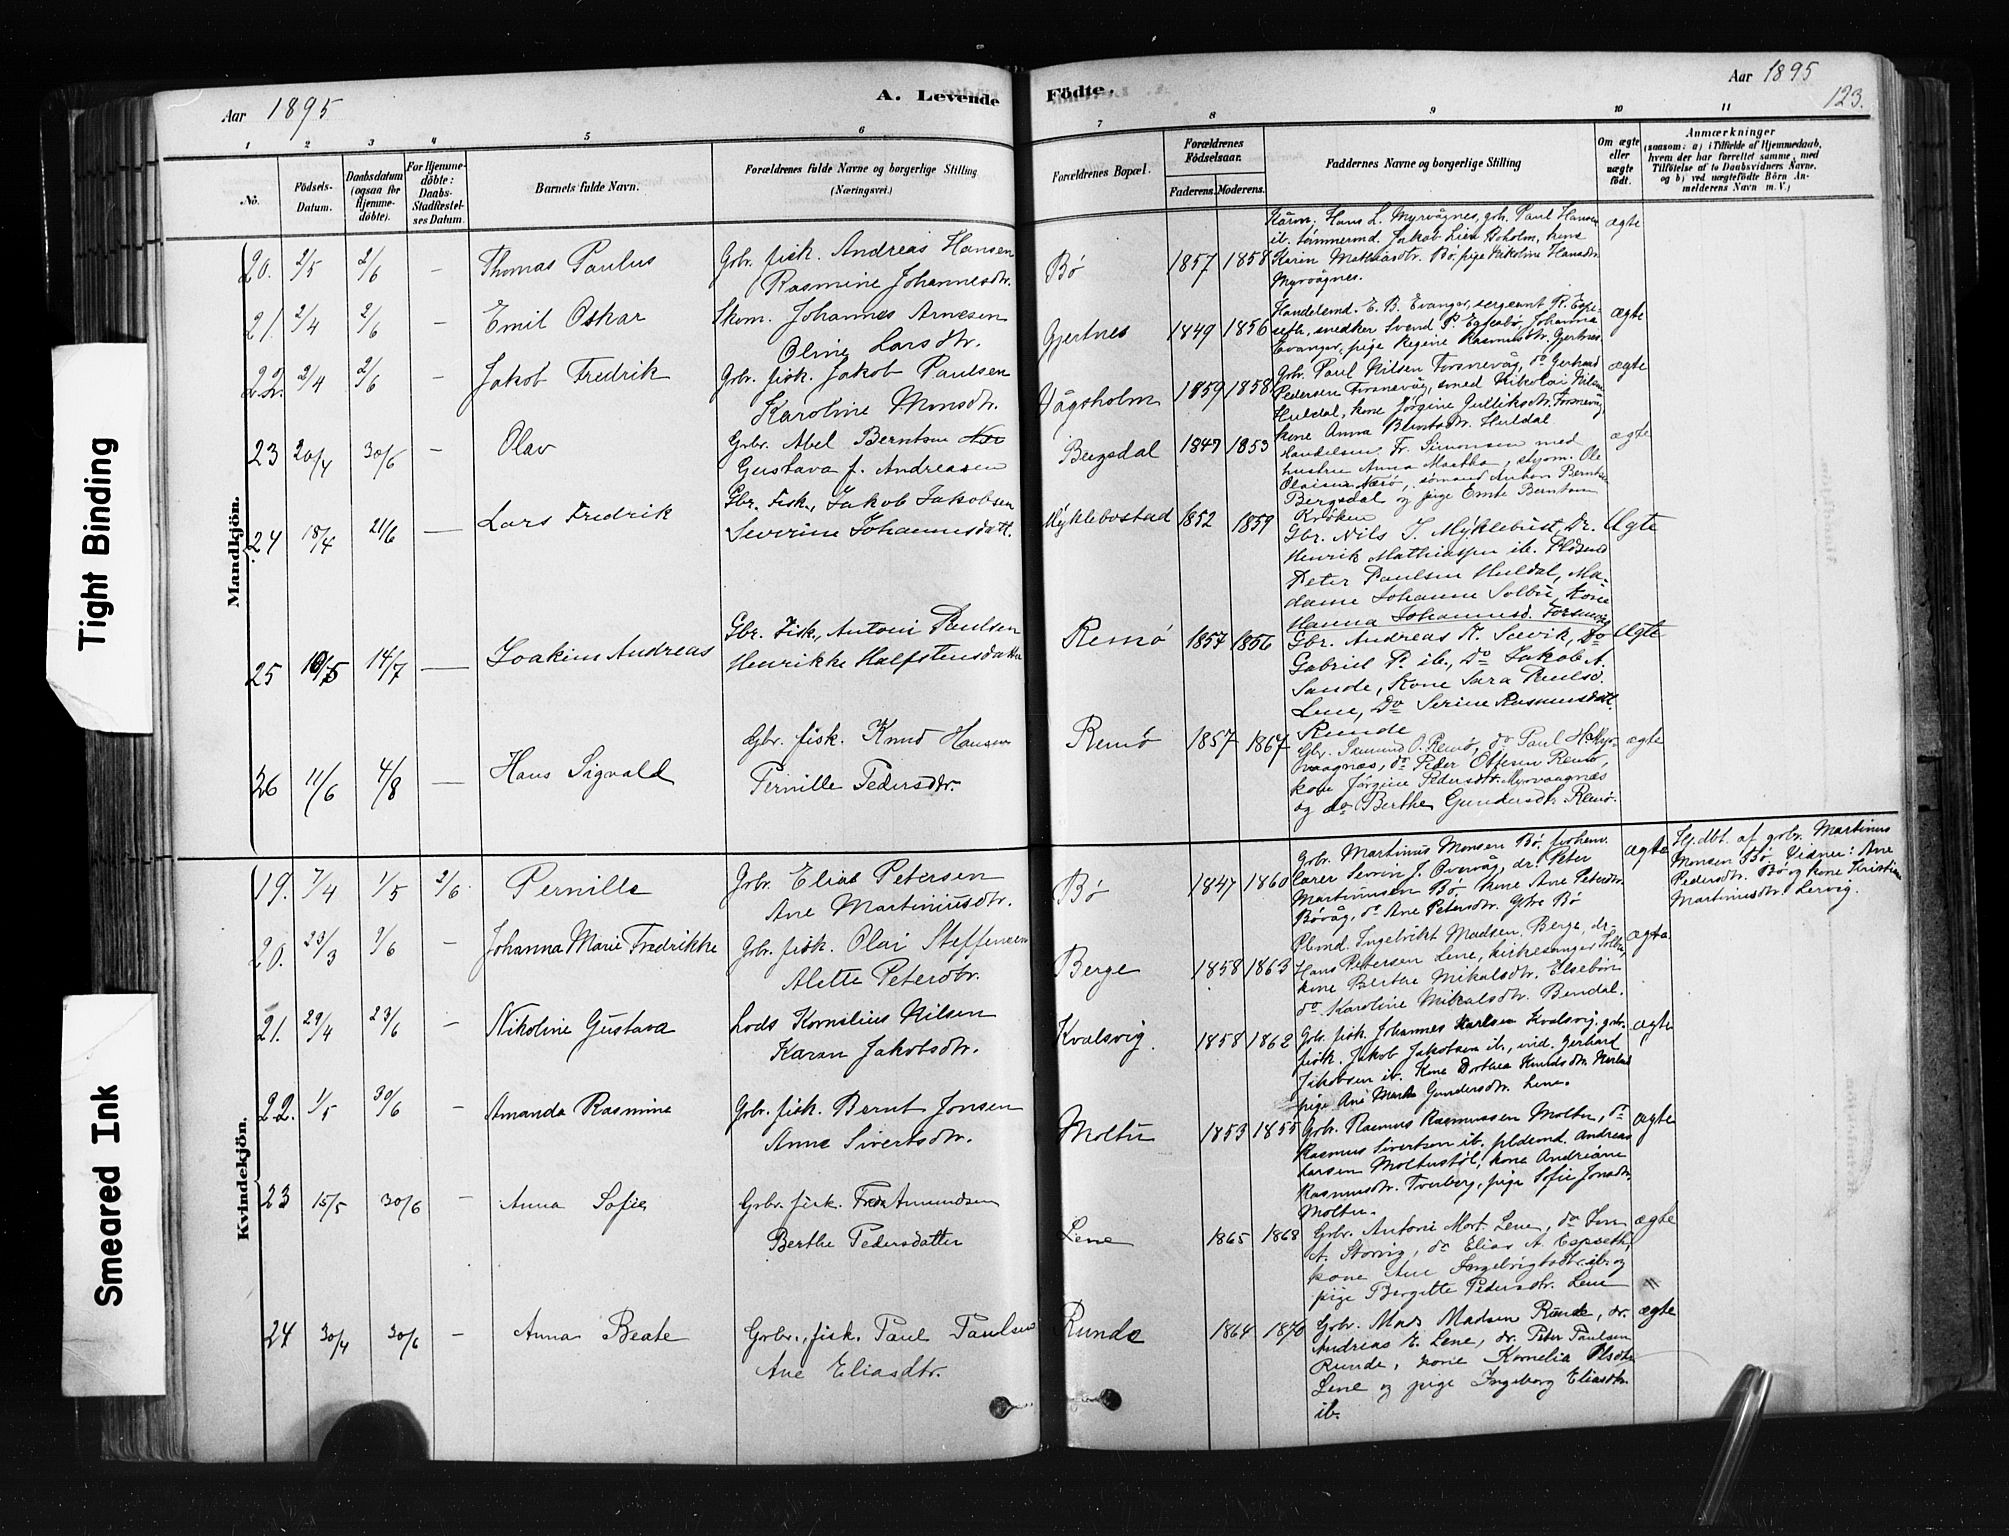 Tight Binding
Smeared Ink
Aar 1895
A. Levende
Födte.
Aar 1895
123.
1
2
3
4
5
6
7
8
9
10
11
No.
Födsels-
Datum.
Daabsdatum
(ogsaa for
Hjemme-
döbte).
For Hjemme-
döbte:
Daabs-
Stadfæstel-
ses Datum.
Barnets fulde Navn.
Forældrenes fulde Navne og borgerlige Stilling
(Næringsvei.)
Forældrenes Bopæl.
Forældrenes
Födselsaar.
Faderens.
Moderens.
Faddernes Navne og borgerlige Stilling
Om ægte
eller
uægte
födt.
Anmærkninger
(saasom: a) i Tilfælde af Hjemmedaab,
hvem der har forrettet samme, med
Tilföielse af to Daabsvidners Navne.
og b) ved uægtefödte Börn An-
melderens Navn m. V.)
Mandkjön.
20. 2/5 2/6 – Thomas Paulus
Gbr. fisk. Andreas Hansen
Rasmine Johannesdtr.
Bø 1857 1858
Hans L. Myrvågnes, gbr. Paul Hansen
ib. tømmermd. Jakob Lien Boholm, kone
Karin Mathiasdtr. Bø, pige Nikoline Hansdtr
Myrvågnes.
ægte
21. 2/4 2/6 – Emil Oskar
Skom. Johannes Arnesen
Oline Larsdtr.
Gjertnes 1849 1856
Handelsmd. E. B. Evanger, sergeant R. Espe-
seth, snedker Svend P. Egsebø, Johanna
Evanger, pige Regine Rasmusdtr. Gjertnes
ægte
22. 2/4 2/6 – Jakob Fredrik
Gbr. fisk. Jakob Paulsen
Karoline Monsdtr.
Vågsholm 1859 1858
Gbr. Paul Nilsen Forsnevåg, do Gerhard
Pedersen Forsnevåg, smed Nikolai Nilsen
Huldal, kone Jørgine Gulliksdtr. Forsnevåg
kone Anna Berntsdtr. Huldal
ægte
23 20/4 30/6 – Olav
Gbr. Abel Berntsen
Gustava f. Andreasen
Bergsdal 1847 1853
Fr. Simonsen med
hustru Anna Martha, Ole
Olaisen Nerø, sømand Anton Berntsen
Bergsdal og pige Emte Berntsen
Krøken
ægte
24 18/4 21/6 — Lars Fredrik
Gbr. Fisk., Jakob Jakobsen
Severine Johannesdatt.
Myklebostad 1852 1859
Gbr. Nils J. Myklebust, Do.
Henrik Mathiassen ib.
Peter Paulsen Huldal, Ma-
dame Johanne Solbu, Kone
Hanna Johannesd. Forsnevåg
Ægte
25 10/5 14/7 — Joakim Andreas
Gbr. Fisk., Antoni Paulsen
Henrikke Halfstensdatter
Remø 1857 1856
Gbr. Andreas K. Sævik, Do
Gabriel P. ib., Do Jakob A.
Sande, Kone Sara Paulsd.
Lene, Do Serine Rasmusdatt.
Runde
Ægte
26 11/6 4/8 — Hans Sigvald
Gbr. fisk. Knud Hansen
Pernille Pedersdtr.
Remø 1857 1867
Gbr. Ismund O. Remø, do Paul H. Myr-
vaagnæs, do Peder Ottesen Remø,
kone Jørgine Pedersdtr. Myrvaagnæs
og do Berthe Gundersdtr. Remø.
ægte
Kvindekjön.
19. 7/4 1/5 2/6. Pernille
Gbr. Elias Petersen
Ane Martinusdtr.
Bø 1847 1860
Gbr. Martinus Monsen Bø, forhenv.
lærer Sevrin J. Overvåg, do Peter
Martinusen Bø, kone Ane Petersdtr.
Bøvåg, do Ane Petersdtr. Bø
ægte
Hj.dbt. af gbr. Martinus
Monsen Bø. Vidner: Ane
Pedersdtr. Bø og kone Kristine
Martinusdtr. Lervig.
20. 23/3 2/6 – Johanna Marie Fredrikke
Gbr. fisk. Olai Steffensen
Alette Petersdtr.
Berge 1858 1863
Ingebrikt Madsen Berge, do
Hans Petersen Lene, kirkesanger Solbu,
kone Berthe Mikalsdtr. Elsebøn
do Karoline Mikalsdtr. Bendal.
ægte
21. 29/4 23/6 – Nikoline Gustava
Lods Kornelius Nilsen
Karen Jakobsdtr.
Kvalsvig. 1858 1862
Gbr. fisk. Johannes Karlsen Kvalsvig, gbr.
fisk. Jakob Jakobsen ib., ind. Gerhard
Jakobsen ib. Kone Dorthea Knudsdtr.
pige Ane Marta Gundersdtr. Lene.
ægte
22. 1/5 30/6 – Amanda Rasmine
Gbr. fisk. Bernt Jonsen
Anne Sivertsdtr.
Moltu 1853 1855
Gbr. Rasmus Rasmussen Moltu, do
Rasmus Sivertsen ib. pldsmd. Andreas
Larsen Moltustøl, kone Andriane
Rasmusdtr. Tverberg, pige Sofie Jonsdtr.
Moltu.
ægte
23 15/5 30/6 – Anna Sofie
Gbr. fisk. Amundsen
Berthe Pedersdatter
Lene 1865 1868
Gbr. Antoni Mort. Lene, do Jon
A. Storvig, do Elias A. Espseth,
kone Ane Ingebrigtsdtr. ib. og
pige Bergitte Pedersdtr. Lene
ægte
24 30/4 30/6 – Anna Beate
Gbr., fisk. Paul Paulsen
Ane Eliasdtr.
Runde 1864 1870
Gbr. Mads Madsen Runde, do
Andreas E. Lene, do. Peter Paulsen
Runde, kone Kornelia Olsdtr.
Lene og pige Ingeborg Eliasdtr.
ib.
ægte